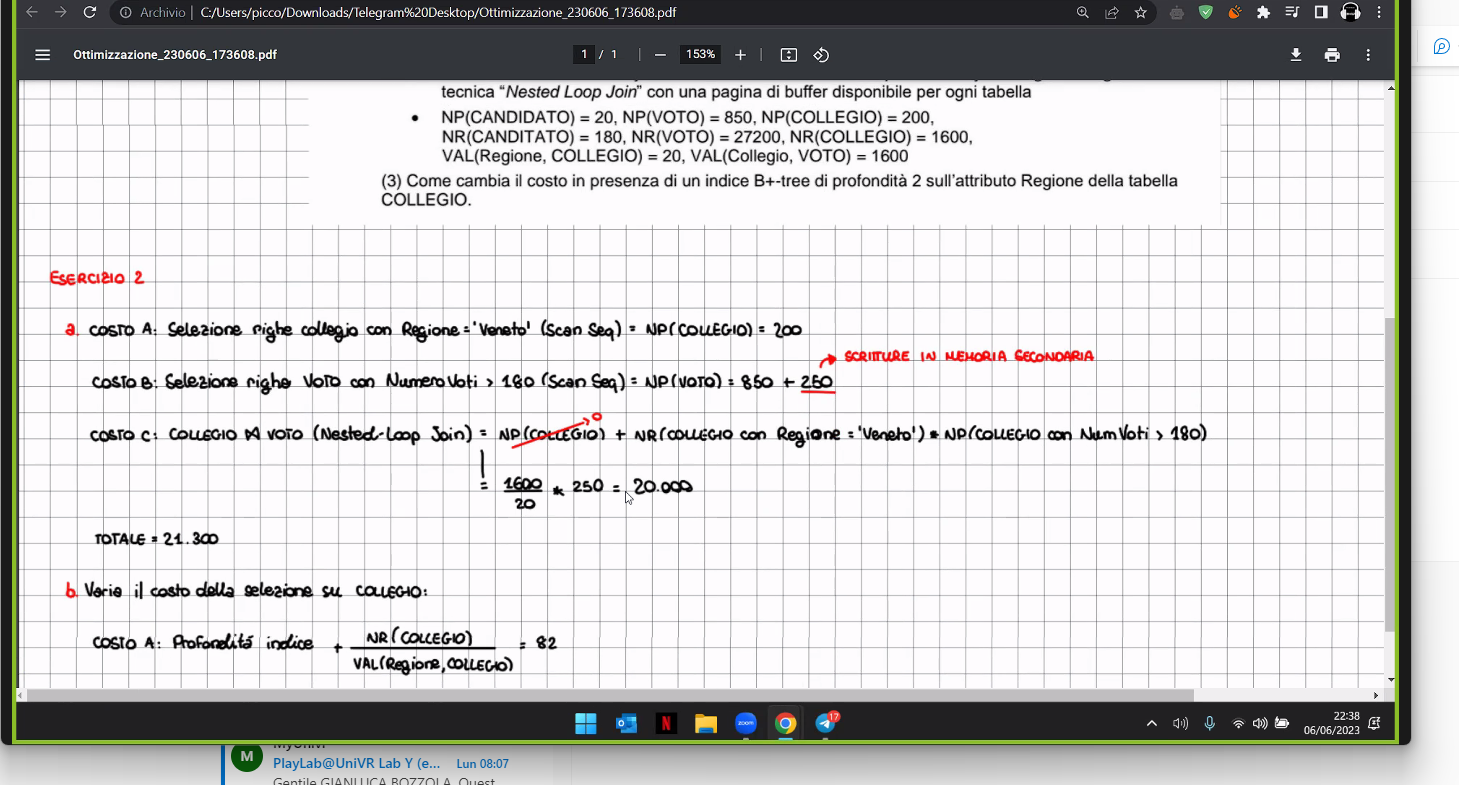 Archivio | C:/Users/picco/Downloads/Telegram%20Desktop/Ottimizzazione_230606_173608.pdf
Ottimizzazione_230606_173608.pdf
1 / 1
153%
tecnica “Nested Loop Join” con una pagina di buffer disponibile per ogni tabella
• NP(CANDIDATO) = 20, NP(VOTO) = 850, NP(COLLEGIO) = 200,
NR(CANDITATO) = 180, NR(VOTO) = 27200, NR(COLLEGIO) = 1600,
VAL(Regione, COLLEGIO) = 20, VAL(Collegio, VOTO) = 1600
(3) Come cambia il costo in presenza di un indice B+-tree di profondità 2 sull’attributo Regione della tabella
COLLEGIO.
ESERCIZIO 2
a. COSTO A: Selezione righe collegio con Regione = 'Veneto' (Scan Seq) = NP(COLLEGIO) = 200
SCRITTURE IN MEMORIA SECONDARIA
COSTO B: Selezione righe VOTO con NumeroVoti > 180 (Scan Seq) = NP(VOTO) = 850 + 250
COSTO C: COLLEGIO ⋈ VOTO (Nested-Loop Join) = NP(COLLEGIO) + NR(COLLEGIO con Regione = 'Veneto') * NP(COLLEGIO con NumVoti > 180)
0
= 1600/20 * 250 = 20.000
TOTALE = 21.300
b. Varia il costo della selezione su COLLEGIO:
COSTO A: Profondità indice + NR(COLLEGIO)/VAL(Regione, COLLEGIO) = 82
N
zoom
17
22:38
06/06/2023
M
MyUnivr
PlayLab@UniVR Lab Y (e... Lun 08:07
Gentile GIANLUCA BOZZOLA, Quest